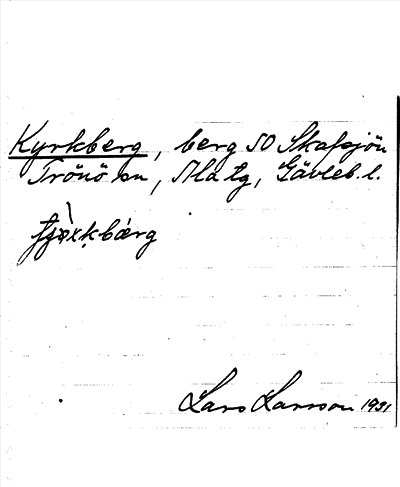 Kyrkberg, berg SO Skafsjön
Trönö sn, Ala tg, Gävleb. l.
Lars Larsson 1931